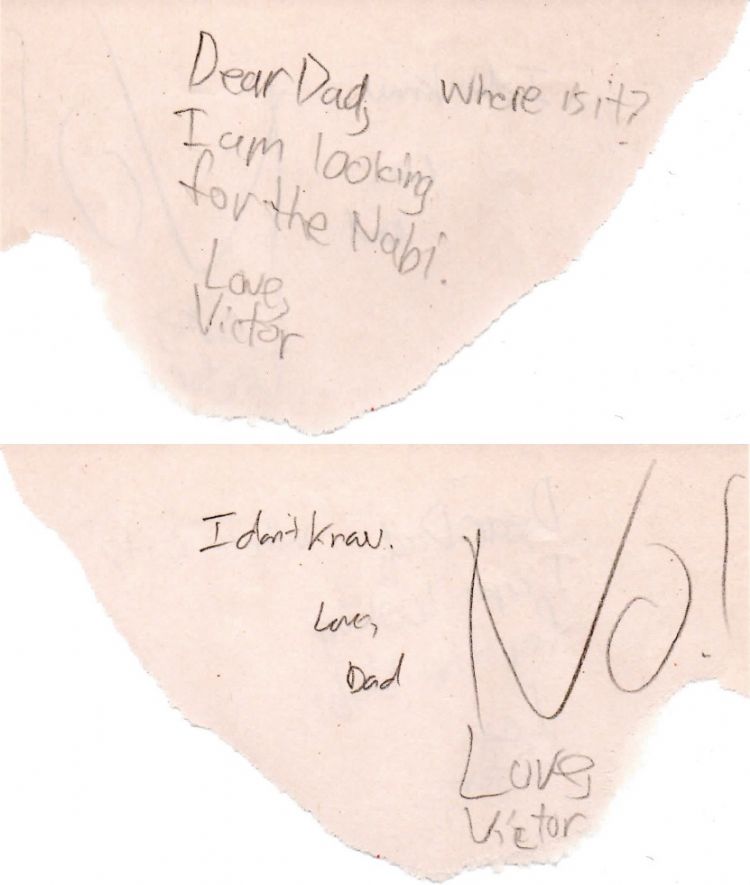 Dear Dad,
I am looking
for the Nabi.
Love,
Victor
Where is it?
I don't know.
Love,
Dad
No!
Love,
Victor